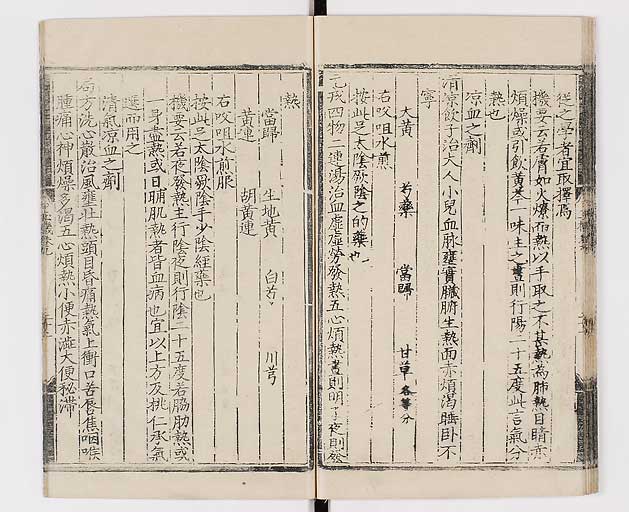 從之學者宜取擇焉
機要云若膚如火燎而熱以手取之不甚熱為肺熱目睛赤
煩燥或引飲黃芩一味主之晝則行陽二十五度此言氣分
熱也
涼血之劑
清涼飲子治大人小兒血脉壅實臟腑生熱面赤煩渴睡卧不
寧
大黃 芍藥 當歸 甘草各等分
右㕮咀水煎
按此足太陰厥陰之的藥也
元戎四物二連湯治血虛虛勞發熱五心煩熱晝則明了夜則發
熱
當歸 生地黃 白芍 川芎
黃連 胡黃連
右㕮咀水煎服
按此足太陰厥陰手少陰經藥也
機要云若夜發熱主行陰夜則行陰二十五度若脇肋熱或
一身盡熱或日晡肌熱者皆血病也宜以上方及桃仁承氣
選而用之
清氣涼血之劑
局方洗心散治風壅壯熱頭目昏痛熱氣上衝口苦唇焦咽喉
腫痛心神煩燥多渴五心煩熱小便赤澁大便秘滯